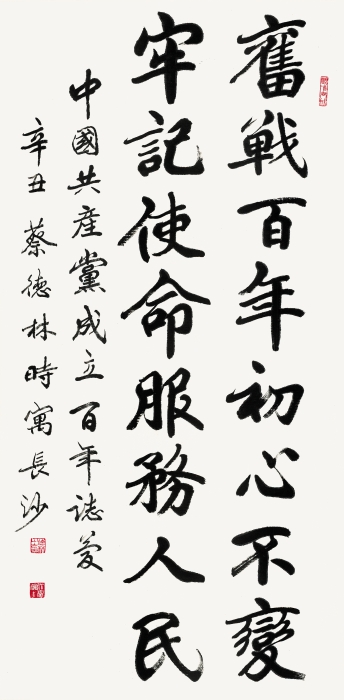 奮戰百年初心不變
牢記使命服務人民
中國共產黨成立百年誌慶
辛丑 蔡德林時寓長沙